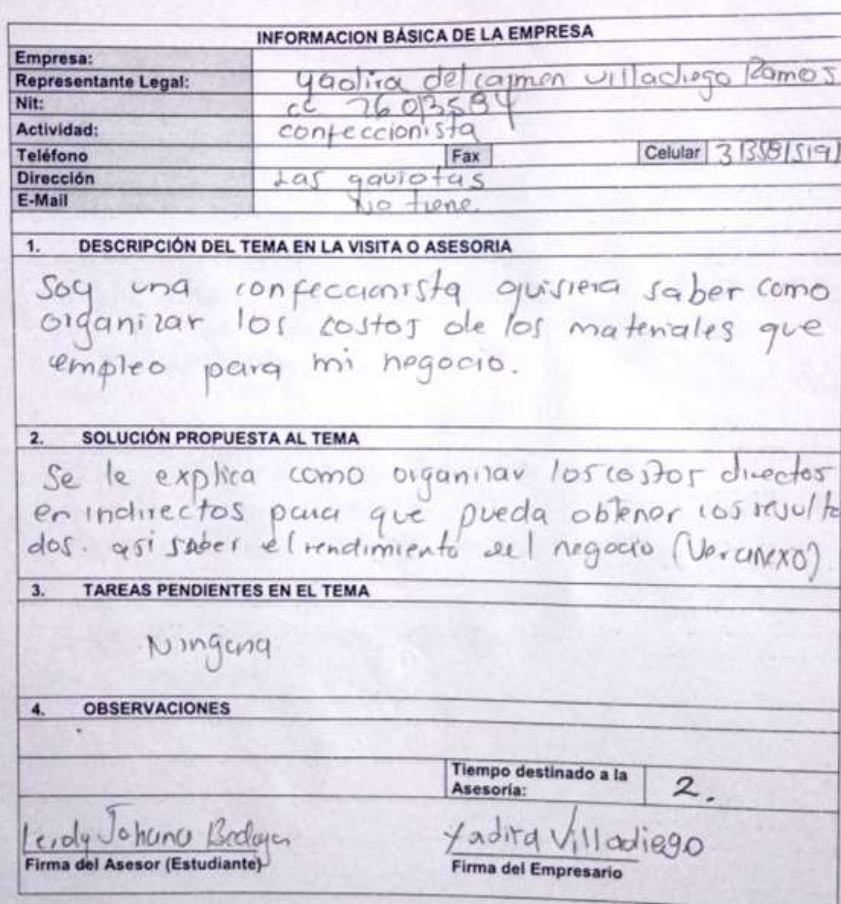 INFORMACION BÁSICA DE LA EMPRESA
Empresa:
Representante Legal: Yadira del carmen Villadiego Ramos
Nit: cc
Actividad: confeccionista
Teléfono Fax Celular
Dirección Las gaviotas
E-Mail No tiene
1. DESCRIPCIÓN DEL TEMA EN LA VISITA O ASESORIA
Soy una confeccionista quisiera saber como
organizar los costos de los materiales que
empleo para mi negocio.
2. SOLUCIÓN PROPUESTA AL TEMA
Se le explica como organizar los costos directos
en indirectos para que pueda obtener los resulta
dos. asi saber el rendimiento del negocio (Ver anexo)
3. TAREAS PENDIENTES EN EL TEMA
Ninguna
4. OBSERVACIONES
Tiempo destinado a la
Asesoría: 2.
Leidy Johana Bedoya Yadira Villadiego
Firma del Asesor (Estudiante) Firma del Empresario